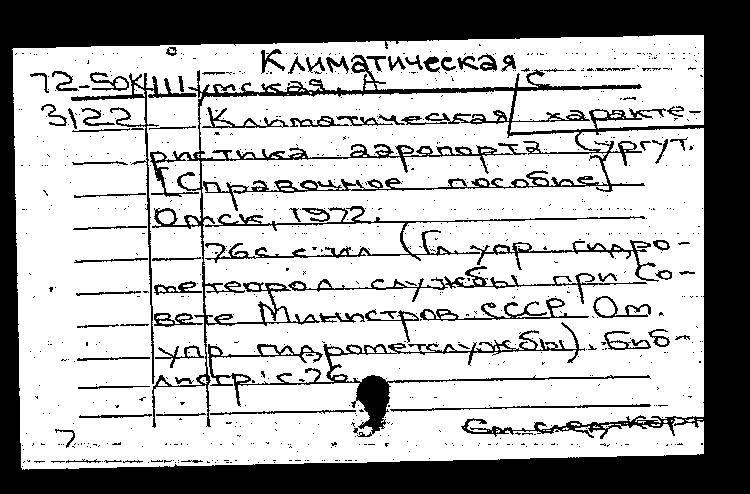 Климатическая
72-50К Шутская, А С
3122 Климатическая характе-
ристика аэропорта Сургут.
[Справочное пособие]
Омск, 1972.
76с. с ил (Гл. упр. гидро-
метеорол. службы при Со-
вете Министров СССР. Ом.
упр. гидрометслужбы). Биб-
лиогр.: с.76.
См. след. карт
7